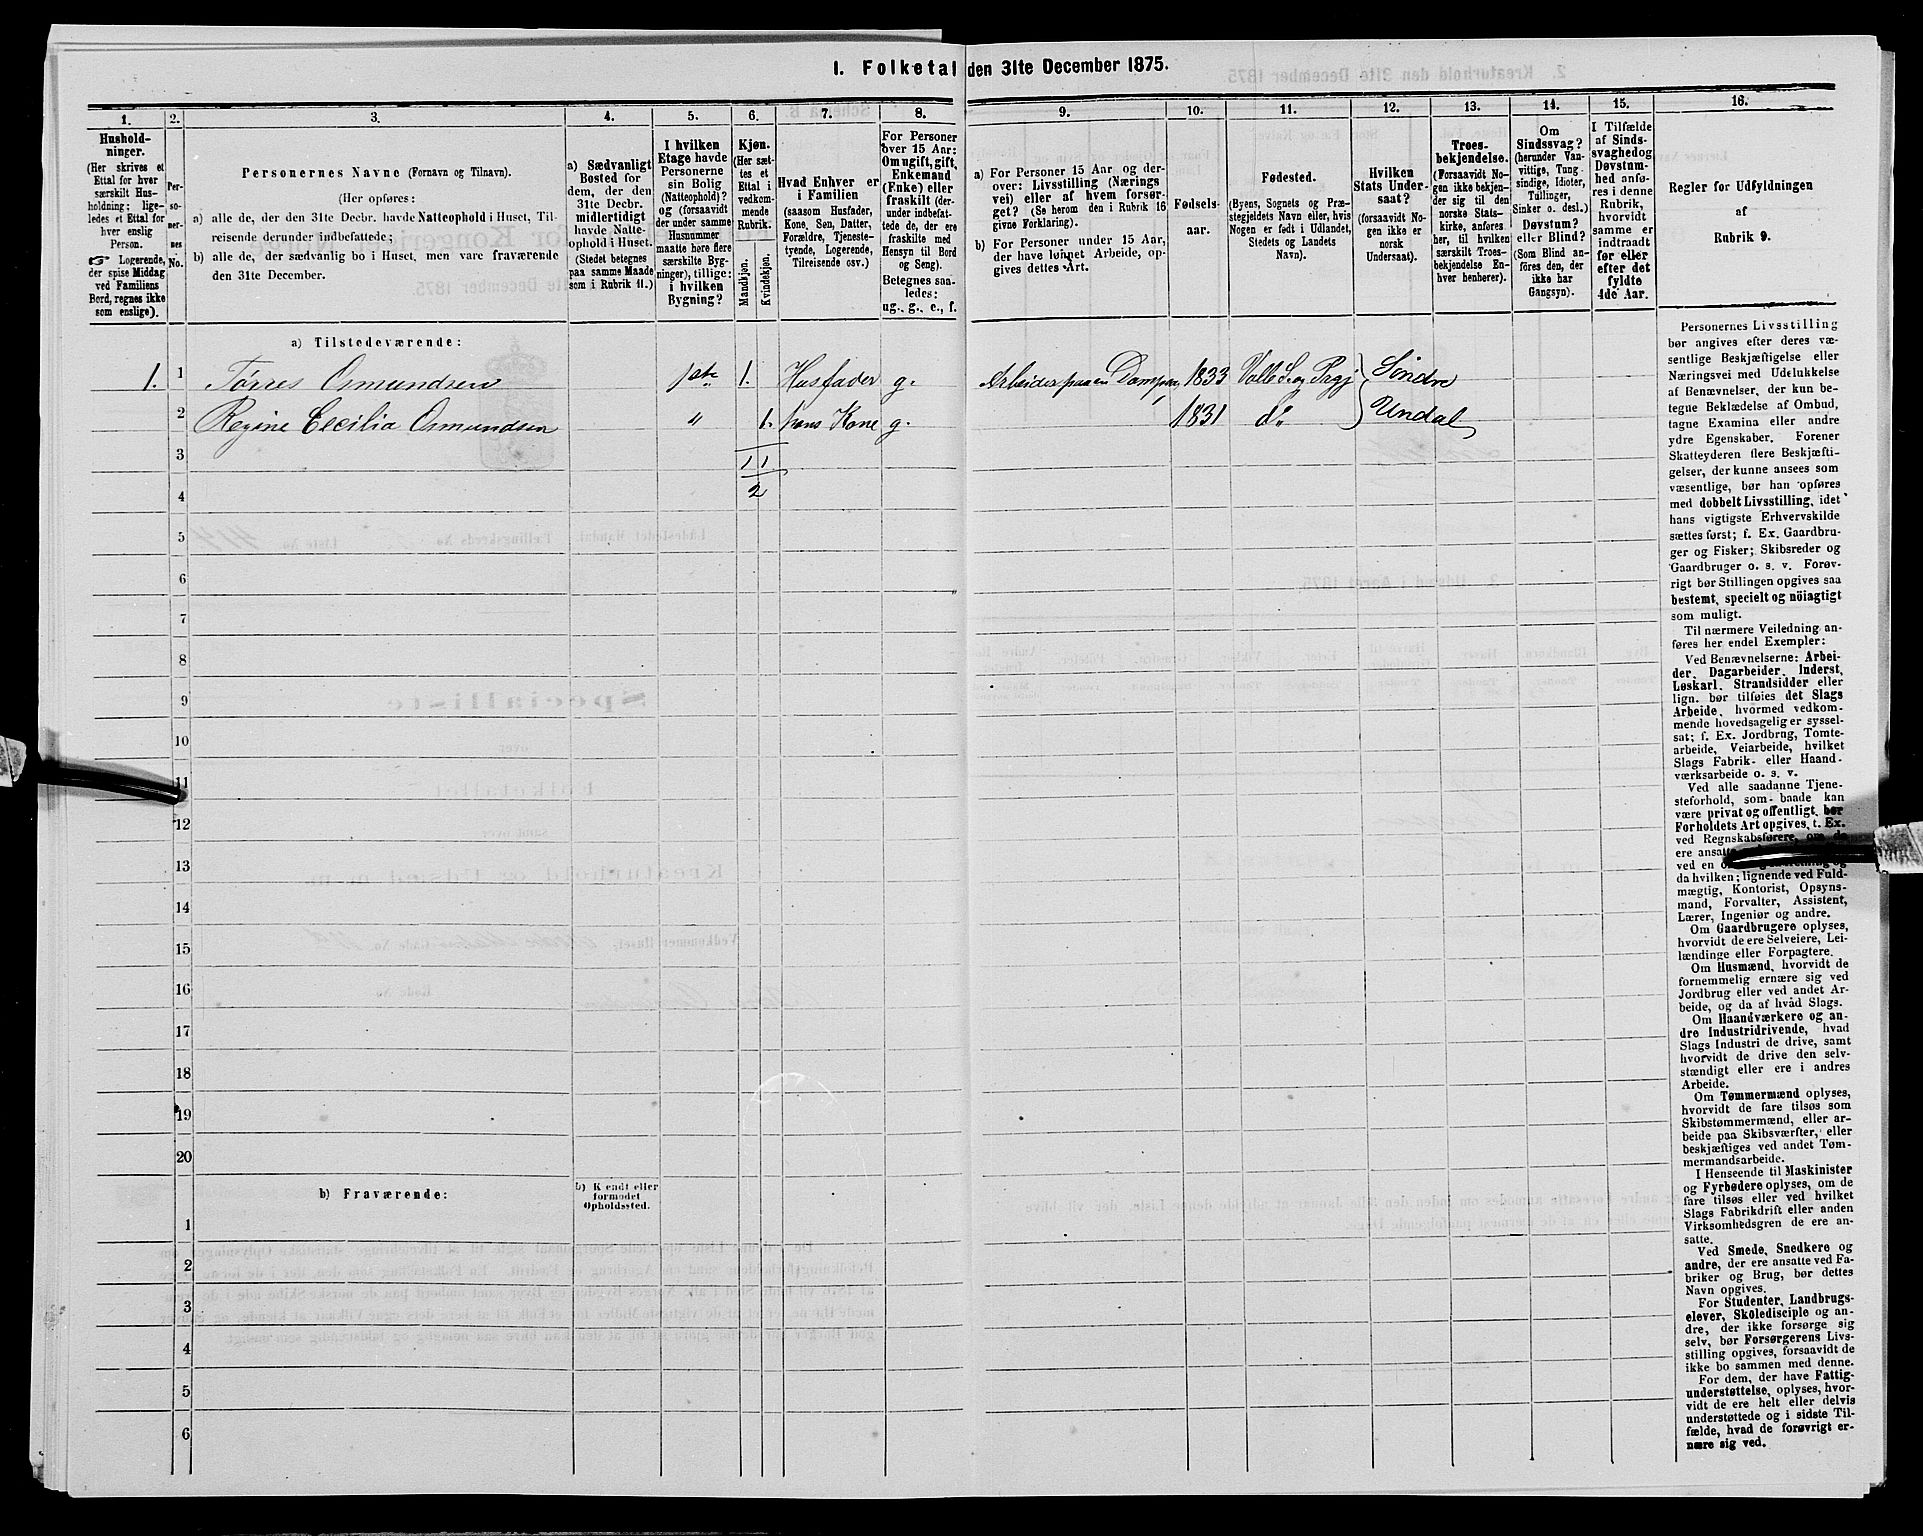 I. Folketal den 31te December 1875.
1. 2. 3. 4. 5. 6. 7. 8. 9. 10. 11. 12. 13. 14. 15. 16.
Hushold-
ninger.
(Her skrives et
Ettal for hver
særskilt Hus-
holdning; lige-
ledes et Ettal for
hver enslig
Person.
☞ Logerende,
der spise Middag
ved Familiens
Bord, regnes ikke
som enslige).
Per-
so-
ner-
nes
No.
Personernes Navne (Fornavn og Tilnavn).
(Her opføres:
a) alle de, der den 31te Decbr. havde Natteophold i Huset, Til-
reisende derunder indbefattede;
b) alle de, der sædvanlig bo i Huset, men vare fraværende
den 31te December.
a) Sædvanligt
Bosted for
dem, der den
31te Decbr.
midlertidigt
havde Natte-
ophold i Huset.
(Stedet betegnes
paa samme Maade
som i Rubrik 11.)
I hvilken
Etage havde
Personerne
sin Bolig
(Natteophold)?
og (forsaavidt
der under samme
Husnummer
maatte høre flere
særskilte Byg-
ninger), tillige:
i hvilken
Bygning?
Kjøn.
(Her sæt-
tes et
Ettal i
vedkom-
mende
Rubrik.
Mandkjøn.
Kvindekjøn.
Hvad Enhver er
i Familien
(saasom Husfader,
Kone, Søn, Datter,
Forældre, Tjeneste-
tyende, Logerende,
Tilreisende osv.)
For Personer
over 15 Aar:
Om ugift, gift,
Enkemand
(Enke) eller
fraskilt (der-
under indbefat-
tede de, der ere
fraskilte med
Hensyn til Bord
og Seng).
Betegnes saa-
ledes:
ug., g., e., f.
a) For Personer 15 Aar og der-
over: Livsstilling (Nærings
vei) eller af hvem forsør-
get? (Se herom den i Rubrik 16
givne Forklaring).
b) For Personer under 15 Aar,
der have lønnet Arbeide, op-
gives dettes Art.
Fødsels-
aar.
Fødested.
(Byens, Sognets og Præ-
stegjeldets Navn eller, hvis
Nogen er født i Udlandet,
Stedets og Landets
Navn).
Hvilken
Stats Under-
saat?
(forsaavidt No-
gen ikke er
norsk
Undersaat).
Troes-
bekjendelse.
(Forsaavidt No-
gen ikke bekjen-
der sig til den
norske Stats-
kirke, anføres
her, til hvilken
særskilt Troes-
bekjendelse En-
hver henhører).
Om
Sindssvag?
(herunder Van-
vittige, Tung-
sindige, Idioter,
Tullinger,
Sinker o. desl.)
Døvstum?
eller Blind?
(Som Blind an-
føres den, der
ikke har
Gangsyn).
I Tilfælde
af Sinds-
svaghed og
Døvstum-
hed anfø-
res i denne
Rubrik,
hvorvidt
samme er
indtraadt
før eller
efter det
fyldte
4de Aar.
Regler for Udfyldningen
af
Rubrik 9.
a) Tilstedeværende:
1. 1 Tørres Osmundsen 1ste 1. Husfader g. Arbeider paa en Dampm 1833 Valle S. og Pagj } Søndre
2 Regine Cecilia Osmundsen " 1. hans Kone g. 1831 do Undal
3 1 1
4 2
5
6
7
8
9
10
11
12
13
14
15
16
17
18
19
20
b) Fraværende:
b) Kjendt eller
formodet
Opholdssted.
1
2
3
4
5
6
Personernes Livsstilling
bør angives efter deres væ-
sentlige Beskjæftigelse eller
Næringsvei med Udelukkelse
af Benævnelser, der kun be-
tegne Beklædelse af Ombud,
tagne Examina eller andre
ydre Egenskaber. Forener
Skatteyderen flere Beskjæfti-
gelser, der kunne ansees som
væsentlige, bør han opføres
med dobbelt Livsstilling, idet
hans vigtigste Erhvervskilde
sættes først; f. Ex. Gaardbru-
ger og Fisker; Skibsreder og
Gaardbruger o. s. v. Forøv-
rigt bør Stillingen opgives saa
bestemt, specielt og nöiagtigt
som muligt.
Til nærmere Veiledning an-
føres her endel Exempler:
Ved Benævnelserne: Arbei-
der, Dagarbeider, Inderst,
Løskarl, Strandsidder eller
lign. bør tilføies det Slags
Arbeide, hvormed vedkom-
mende hovedsagelig er syssel-
sat; f. Ex. Jordbrug, Tomte-
arbeide, Veiarbeide, hvilket
Slags Fabrik- eller Haand-
værksarbeide o. s. v.
Ved alle saadanne Tjene-
steforhold, som baade kan
være privat og offentligt, bør
Forholdets Art opgives, t. Ex.
ved Regnskabsførere, om de
ere ansatte
ved en
da hvilken; lignende ved Fuld-
mægtig, Kontorist, Opsyns-
mand, Forvalter, Assistent,
Lærer, Ingeniør og andre.
Om Gaardbrugere oplyses,
hvorvidt de ere Selveiere, Lei-
lændinge eller Forpagtere.
Om Husmænd, hvorvidt de
fornemmelig ernære sig ved
Jordbrug eller ved andet Ar-
beide, og da af hvad Slags.
Om Haandværkere og an-
dre Industridrivende, hvad
Slags Industri de drive, samt
hvorvidt de drive den selv-
stændigt eller ere i andres
Arbeide.
Om Tømmermænd oplyses,
hvorvidt de fare tilsøs som
Skibstømmermænd, eller ar-
beide paa Skibsværfter, eller
beskjæftiges ved andet Tøm-
mermandsarbeide.
I Henseende til Maskinister
og Fyrbødere oplyses, om de
fare tilsøs eller ved hvilket
Slags Fabrikdrift eller anden
Virksomhedsgren de ere an-
satte.
Ved Smede, Snedkere og
andre, der ere ansatte ved Fa-
briker og Brug, bør dettes
Navn opgives.
For Studenter, Landbrugs-
elever, Skoledisciple og an-
dre, der ikke forsørge sig
selv, bør Forsørgerens Livs-
stilling opgives, forsaavidt de
ikke bo sammen med denne.
For dem, der have Fattig-
understøttelse, oplyses, hvor-
vidt de ere helt eller delvis
understøttede og i sidste Til-
fælde, hvad de forøvrigt er-
nære sig ved.